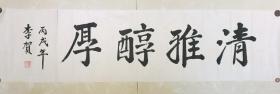 清雅醇厚
丙戌年
李賀